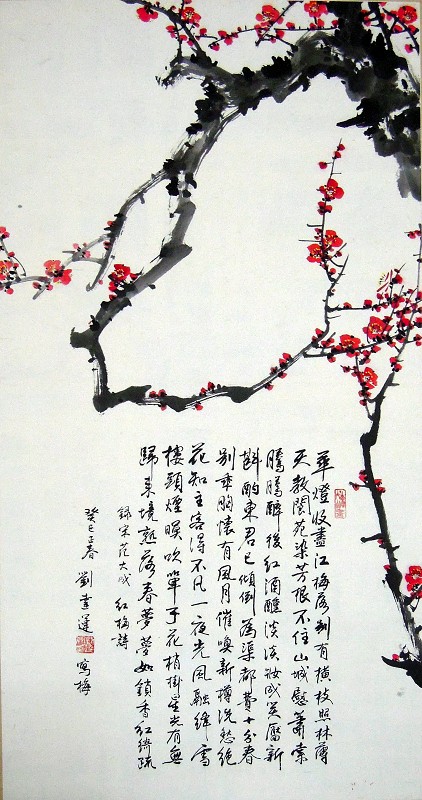 華燈收盡江梅落別有橫枝照林薄
天教閬苑染芳根不住山城慰蕭索
騰騰醉後紅酒醺淡淡妝成笑靨新
斟酌東君已傾倒為渠都費十分春
別乘胸懷有風月催喚新樽洗愁絕
花知主客得不凡一夜光風融絳雪
樓頭煙暝吹單于花梢掛星光有無
歸來境熟落春夢夢如鎖香紅綺疏
錄宋范大成 紅梅詩
癸巳正春 劉 運 寫梅